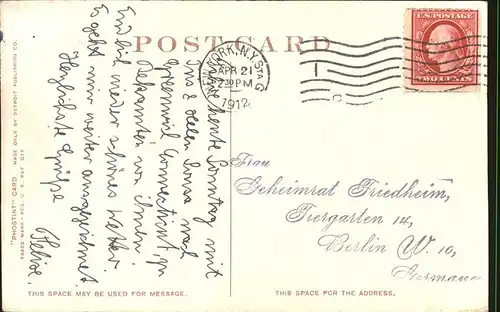 POST CARD
NEW YORK, N.Y. STA G
APR 21
2 30 PM
1912
U.S. POSTAGE
TWO CENTS
"PHOSTINT" CARD MADE ONLY BY DETROIT PUBLISHING CO.
TRADE MARK REG. U.S. PAT. OFF.
heute Sonntag mit
& Helen nach
Greenwich Connecticut, zu
Bekannten von ihnen.
Endlich wieder schönes Wetter.
Es geht mir weiter ausgezeichnet.
Herzlichste Grüße
Felix.
Frau
Geheimrat Friedheim,
Tiergarten 14,
Berlin W. 10,
Germany
THIS SPACE MAY BE USED FOR MESSAGE.
THIS SPACE IS FOR THE ADDRESS.